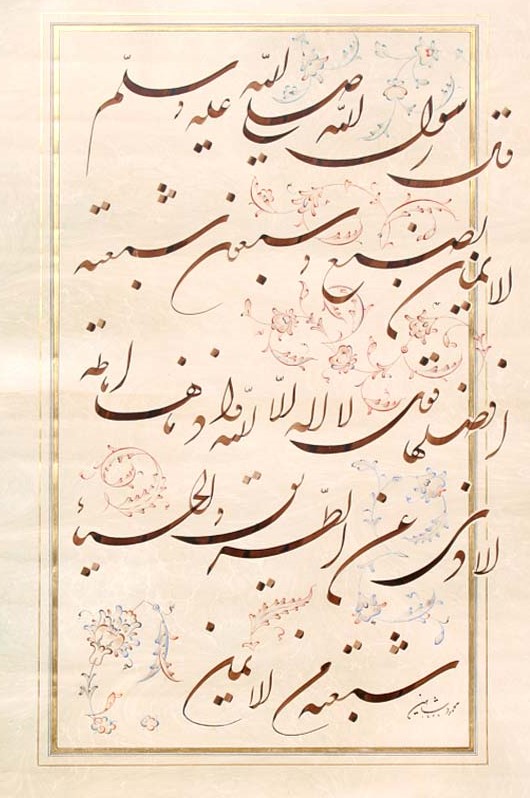 قال رسول الله صلى الله عليه وسلّم
الايمان بضع و سبعون شعبة
افضلها قول لا اله الاّ الله و ادناها اماطة
الاذى عن الطريق والحياء
شعبة من الايمان